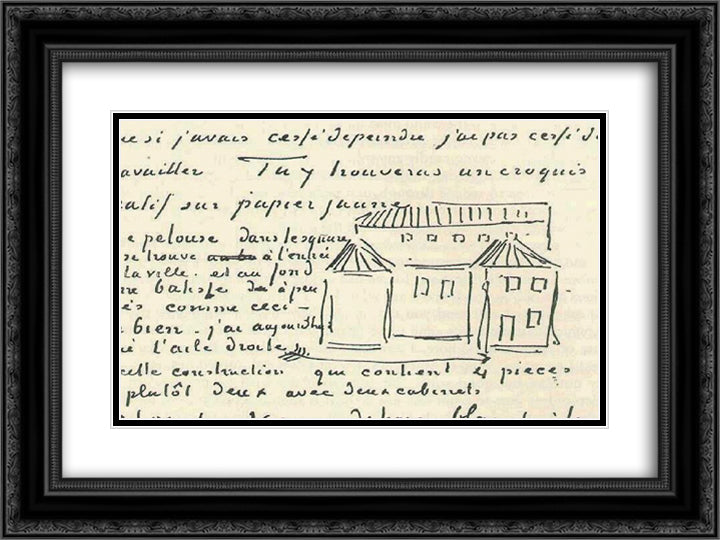 si j'avais cessé de peindre j'ai pas cessé d
availler Tu y trouveras un croquis
atif sur papier jaune
e pelouse dans le square
se trouve à l'entrée
la ville. et au fond
à peu
ès comme ceci –
bien. j'ai aujourdhui
l'aile droite
celle construction qui contient 4 pieces
plutôt deux avec deux cabinets